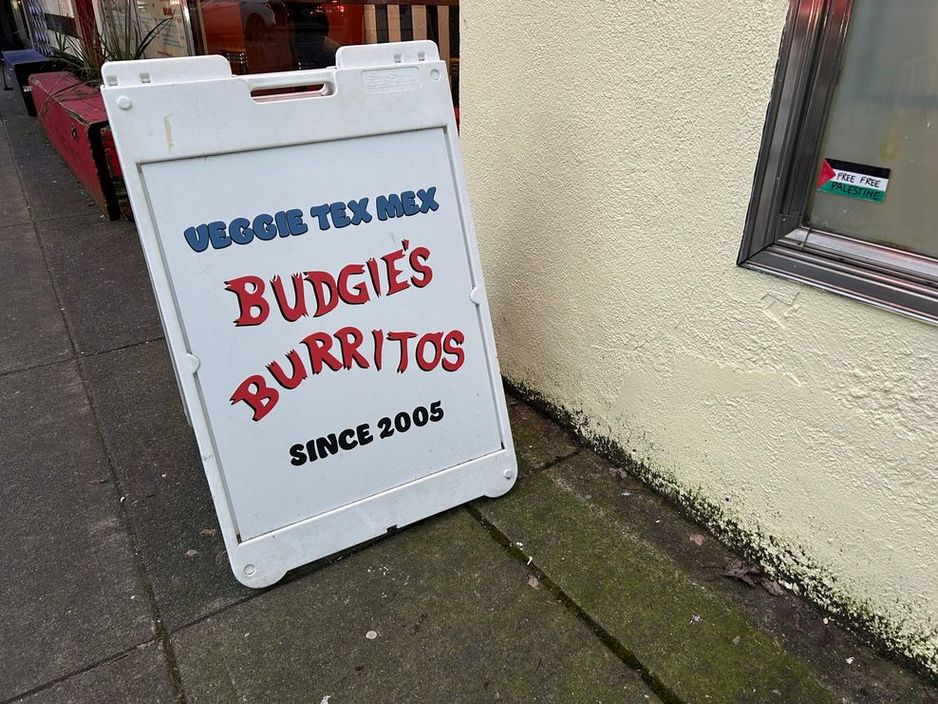 VEGGIE TEX MEX
BUDGIE'S
BURRITOS
SINCE 2005
FREE FREE
PALESTINE